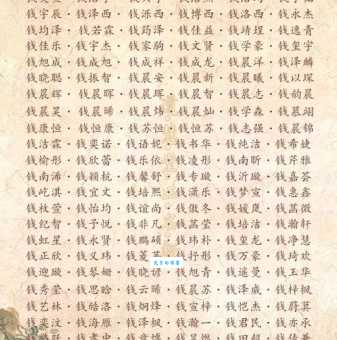 钱宇辰·钱泽西·钱泺西·钱博西·钱洛西·钱永杰
钱均泽·钱若霖·钱筠泽·钱佳益·钱靖埕·钱逸青
钱佳乐·钱宇杰·钱家驹·钱文贤·钱学豪·钱玺宇
钱旭成·钱成威·钱成祥·钱成龙·钱晨洋·钱泽麟
钱晓聪·钱振智·钱晨安·钱晨新·钱晨曦·钱以琛
钱晨晖·钱晨辉·钱晨晖·钱晨智·钱晨志·钱韵晨
钱晨昊·钱晨晞·钱晨炜·钱晨灿·钱学森·钱晨翊
钱康恒·钱恒康·钱苏恒·钱恒苏·钱志强·钱晨锦
钱洁霖·钱奕诺·钱语妮·钱书华·钱纯洁·钱希婕
钱榆彤·钱欣蕾·钱乐依·钱凌彤·钱南昕·钱芹雅
钱南浠·钱颖杭·钱馨舒·钱专璇·钱沂璇·钱嘉芬
钱屹淇·钱宜文·钱培熙·钱潇乐·钱梦宣·钱惠鑫
钱枚萱·钱怡均·钱谊尚·钱傲冬·钱媛凰·钱菡微
钱纪智·钱予悦·钱非凡·钱菡莹·钱培洁·钱瀚轩
钱虹星·钱永贤·钱鹏硕·钱玮朴·钱玺龙·钱净慧
钱正欣·钱义玮·钱·钱抒彤·钱万豪·钱琦欢
钱迎璇·钱琴姗·钱晓谚·钱旭青·钱遥曼·钱玉华
钱秀莹·钱思晗·钱云晞·钱晨苏·钱泽威·钱梓枫
钱艺林·钱皓洛·钱炯烽·钱宣梓·钱恺杰·钱蔚萁
钱奕汶·钱海雁·钱泽枫·钱瀚一·钱君民·钱亦承